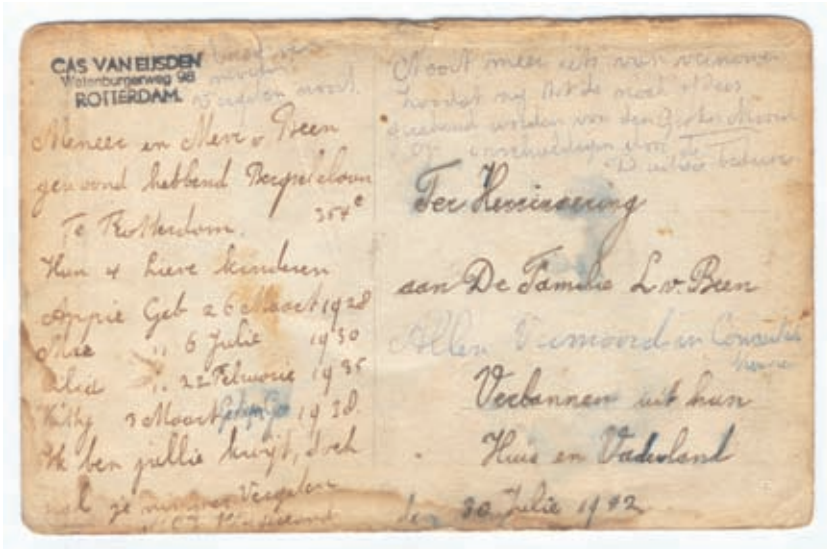 CAS VAN EIJSDEN
Watenburgerweg 98
ROTTERDAM.
vergeten nooit.
Meneer en Mevr v. Been
gewoond hebbend Bergselaan
354c
Te Rotterdam.
Hun 4 lieve kinderen
Appie Geb 26 Maart 1928
Mie ,, 6 Julie 1930
,, 22 Februarie 1935
Kitty 3 Maart 1938.
Ik ben jullie kwijt, doch
zal je nimmer Vergeten
Nooit meer iets van vernomen
worden van den Grooten Moord
op onschuldigen door de
Ter Herinnering
aan De Familie L. v. Been
Allen Vermoord in
Verbannen uit hun
Huis en Vaderland
den 30 Julie 1942